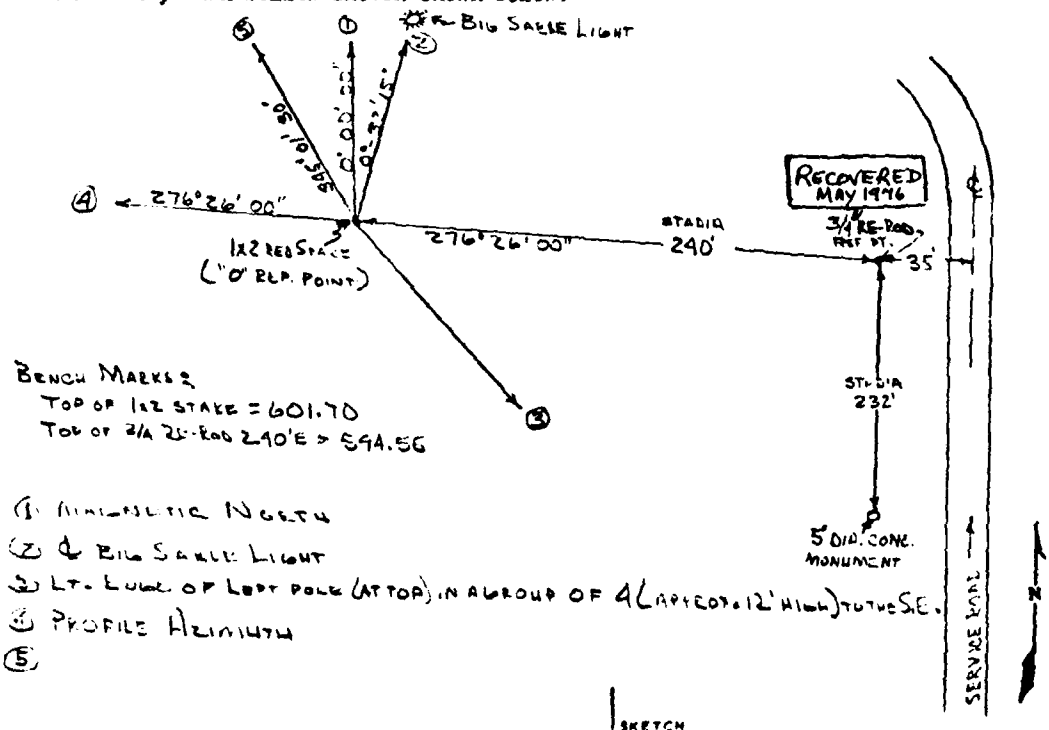 ⑤ ① ②
BIG SABLE LIGHT
0° 00' 00"
④ 276° 26' 00"
1x2 RED STAKE
("0" REF. POINT)
276° 26' 00"
STADIA
240'
RECOVERED
MAY 1976
3/4" RE-ROD
REF PT.
35'
℄
STADIA
232'
5" DIA. CONC.
MONUMENT
③
BENCH MARKS:
TOP OF 1x2 STAKE = 601.70
TOP OF 3/4 RE-ROD 240'E = 594.56
① MAGNETIC NORTH
② ℄ BIG SABLE LIGHT
③ LT. EDGE OF LEFT POLE (AT TOP) IN A GROUP OF 4 (APPROX. 12' HIGH) TO THE S.E.
④ PROFILE AZIMUTH
⑤
SERVICE ROAD
N
SKETCH